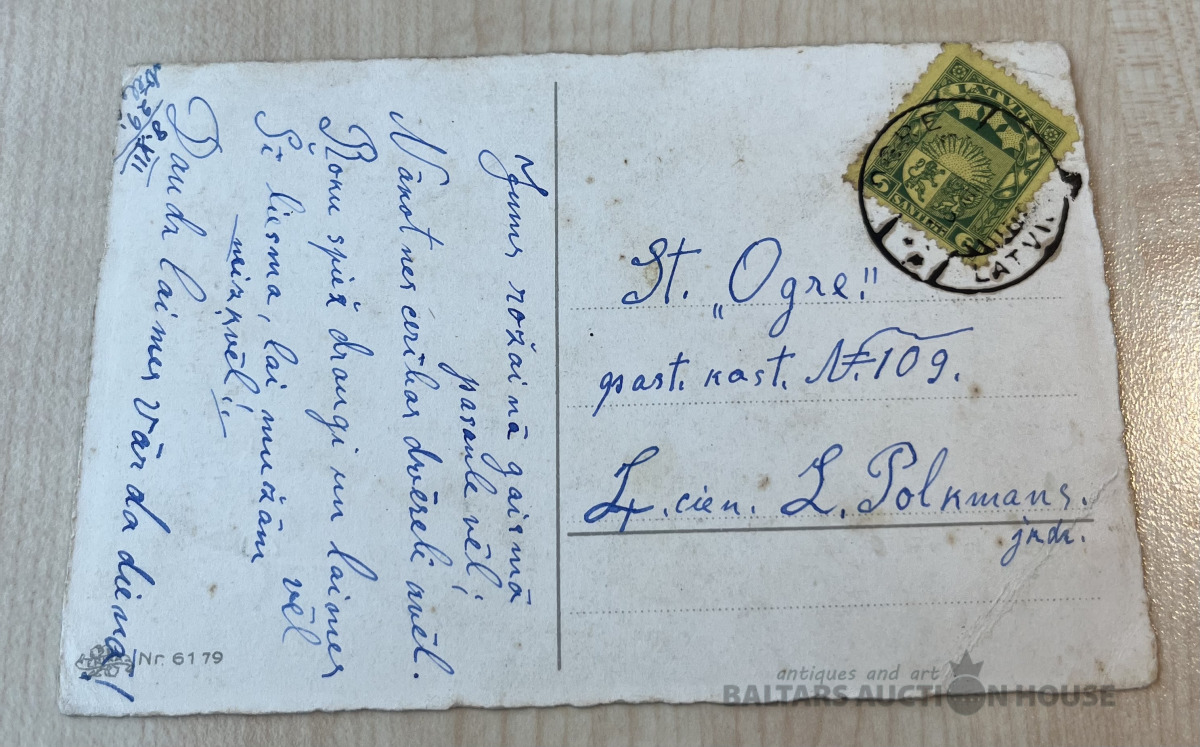 Jums rožainā gaismā
pasaule vēl!
Nākotnes cerības dvēseli avēl.
Roku spiež draugi un laimes vēl
Šī liesma, lai mužam
neizkvēl!
Daudz laimes Vārda dienā!
Nr. 6179
LATVIJA
5
SANTIMI
OGRE
LATVIJA
St. „Ogre."
past. kast. № 109.
Z. cien. Z. Polkmans.
jkdz.
antiques and art
BALTARS AUCTION HOUSE